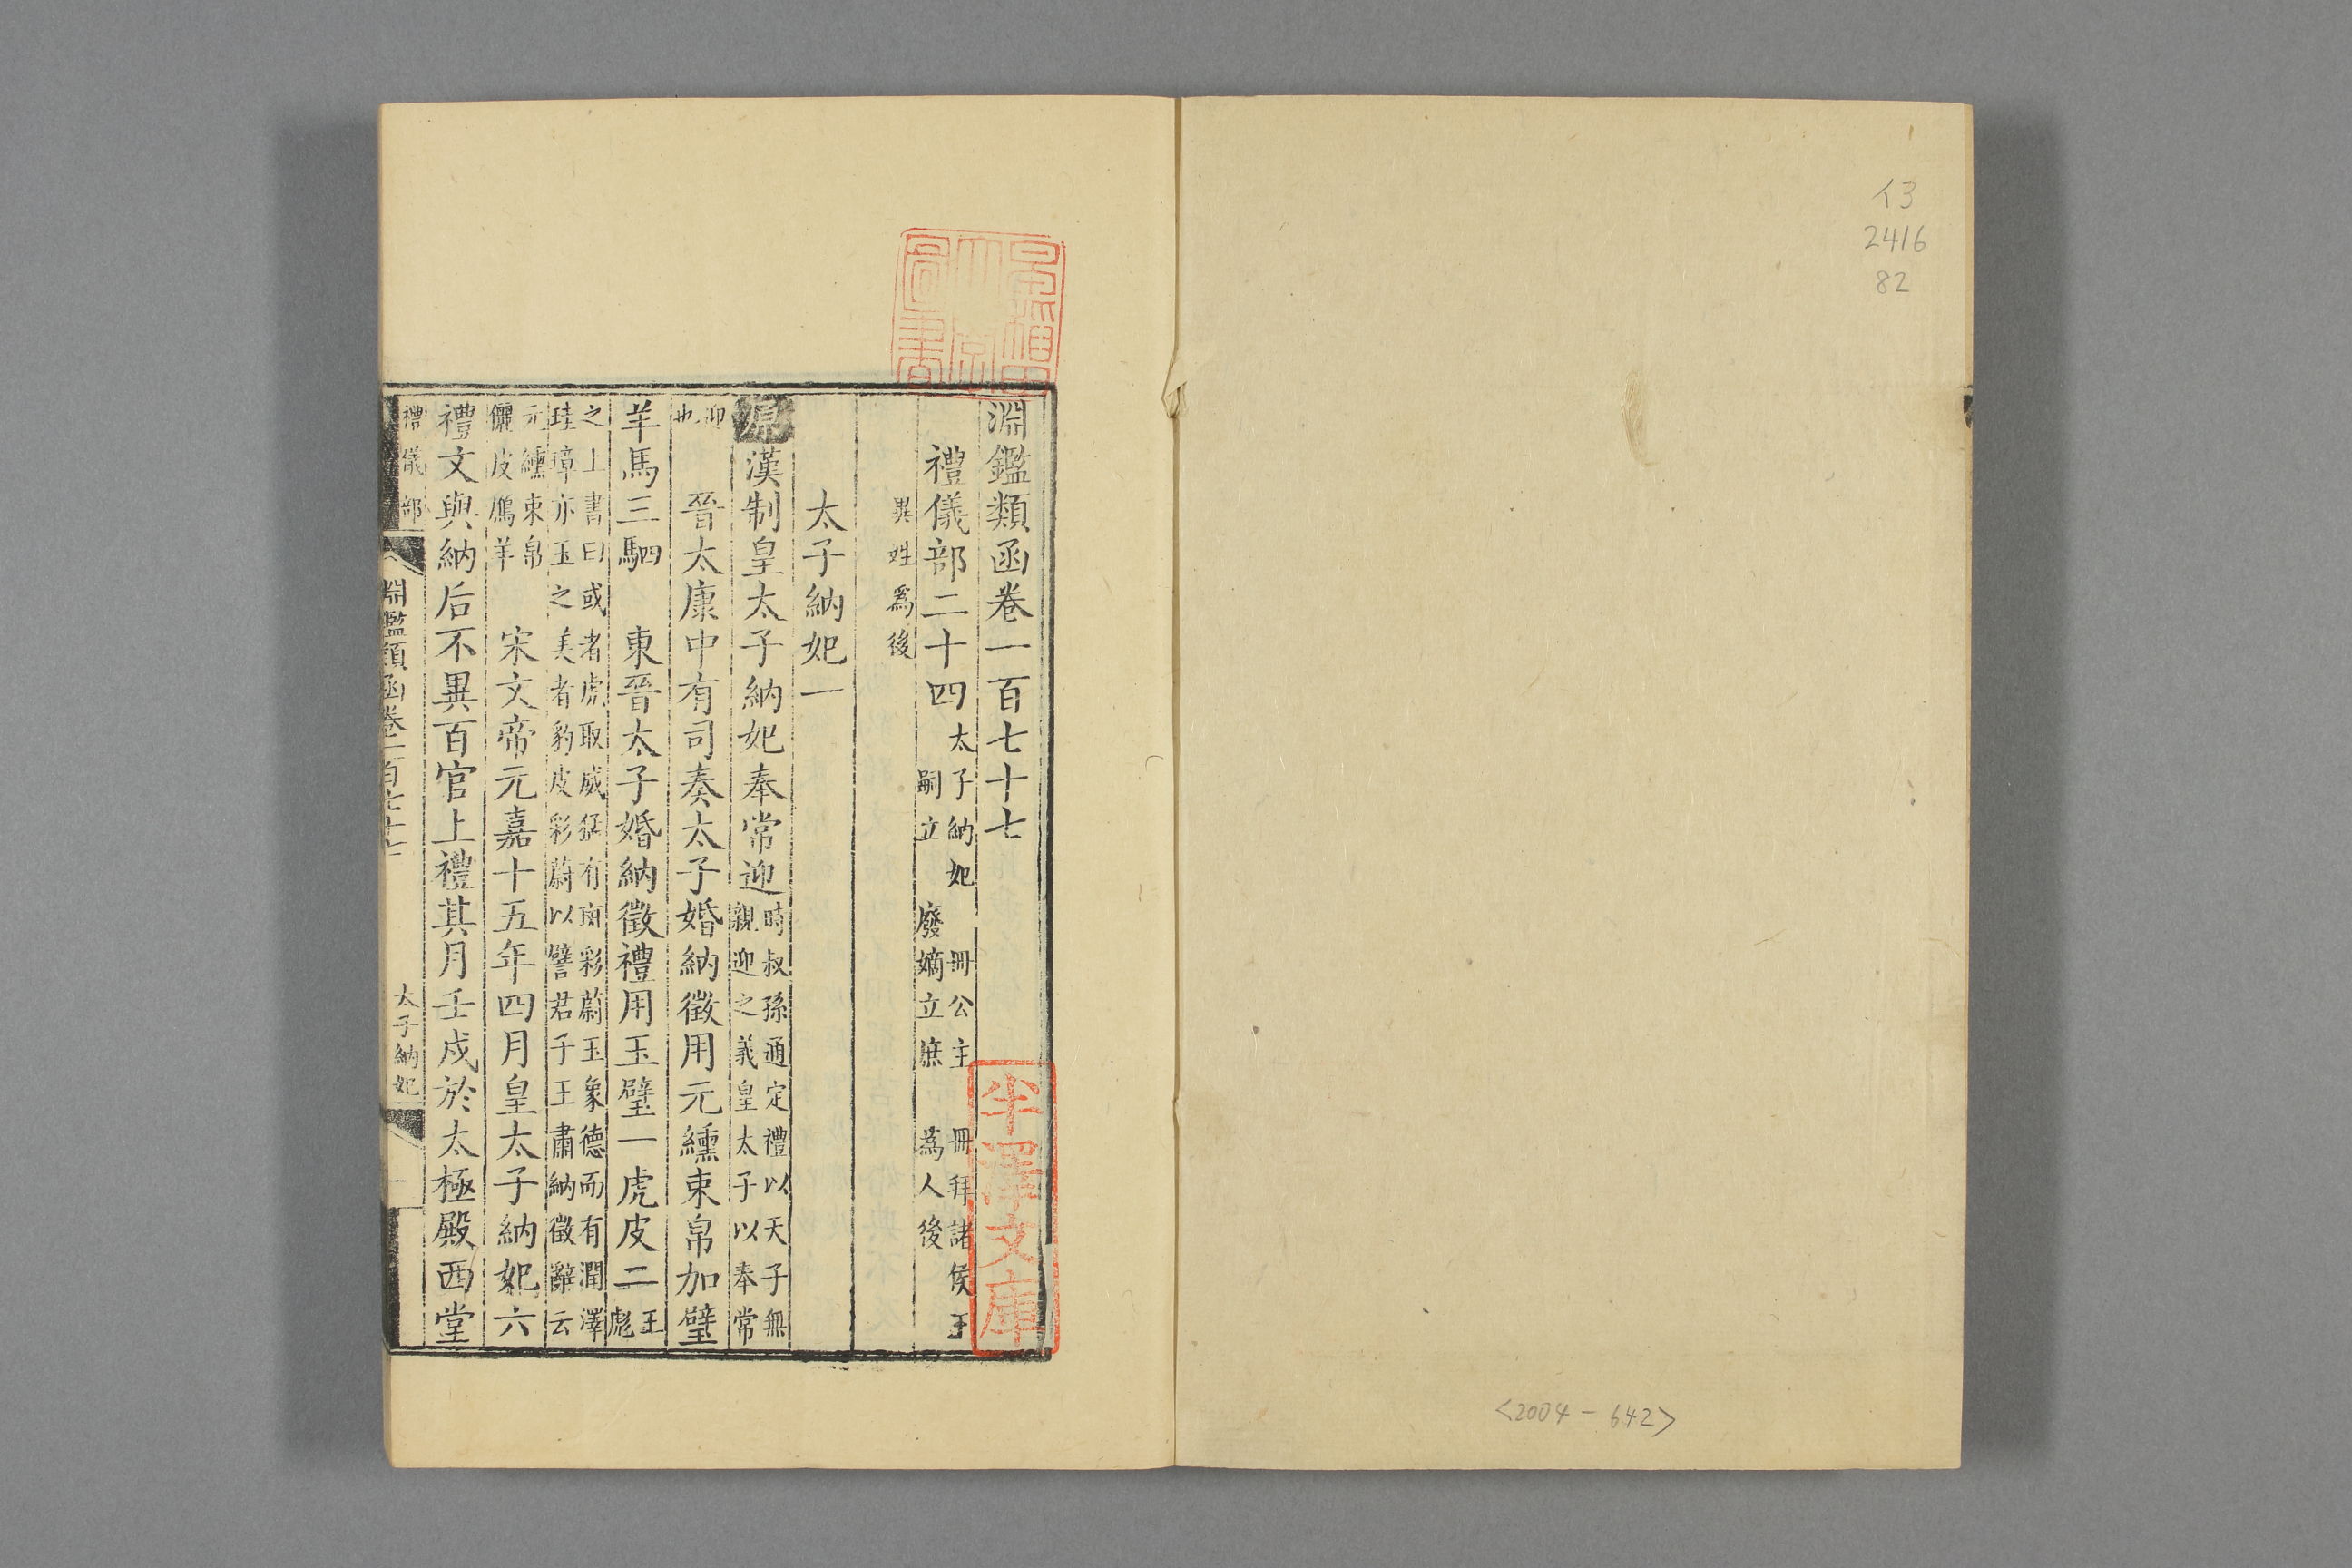 イ3
2416
82
<2004-642>
淵鑑類函卷一百七十七
禮儀部二十四 太子納妃 冊公主 冊拜諸侯王
嗣立 廢嫡立庶 為人後
異姓為後
太子納妃一
原 漢制皇太子納妃奉常迎 時叔孫通定禮以天子無
親迎之義皇太子以奉常
迎
也 晉太康中有司奏太子婚納徵用元纁束帛加璧
羊馬三駟 東晉太子婚納徵禮用玉璧一虎皮二 王
彪
之上書曰或者虎取威猛有斑彩蔚玉象德而有潤澤
珪璋亦玉之美者豹皮彩蔚以譬君子王肅納徵辭云
元纁束帛
儷皮鴈羊 宋文帝元嘉十五年四月皇太子納妃六
禮文與納后不異百官上禮其月壬戌於太極殿西堂
禮儀部
淵鑑類函卷一百七十七
太子納妃
一
半澤文庫
圖書